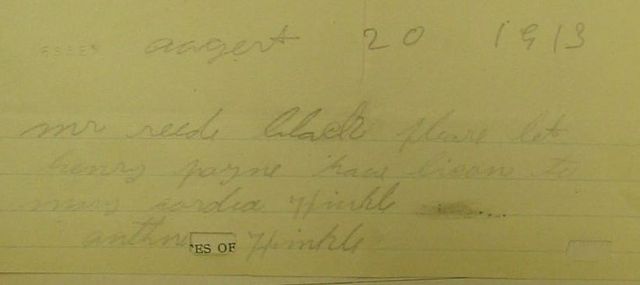 aagert 20 1913
mr reede black please let
henry payne have lisons to
mary cordea Hinkle
anthne Hinkle
ES OF